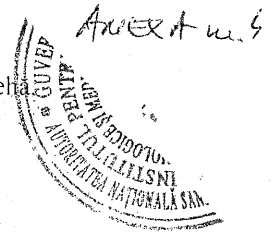 ANEXA nr. 4
eha.
* GUVER
INSTITUTUL PENTR
OLOGICE ŞI MED
AUTORITATEA NAŢIONALĂ SAN.